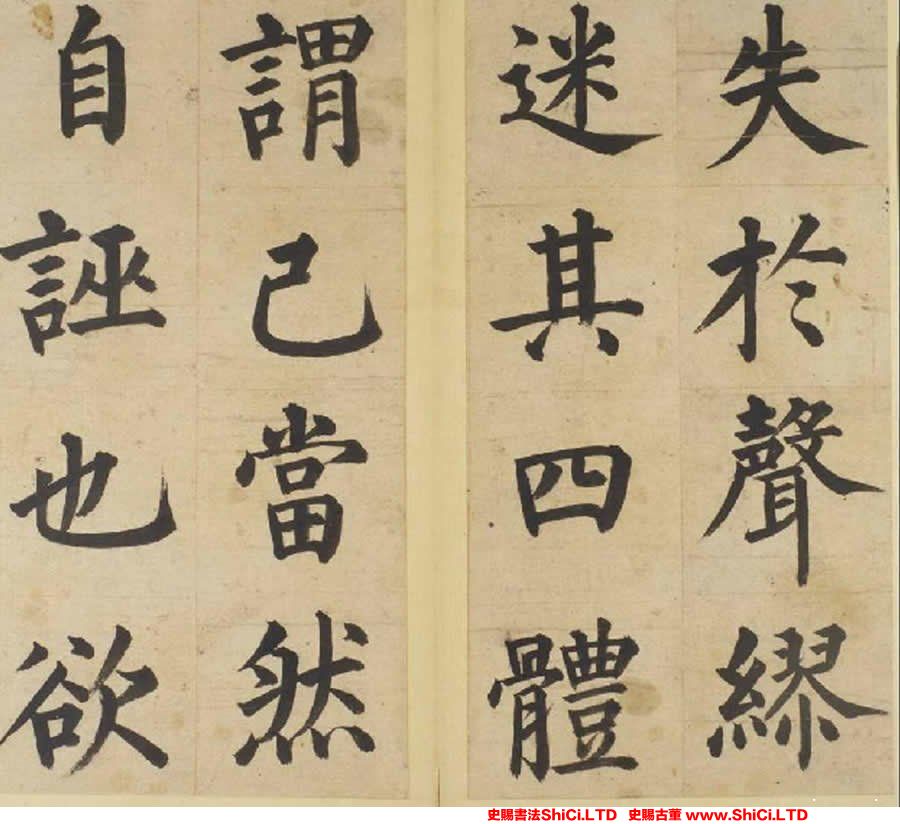 失於聲繆
迷其四體
謂己當然
自誣也欲
史賜書法ShiCi.LTD 史賜古董 www.ShiCi.LTD